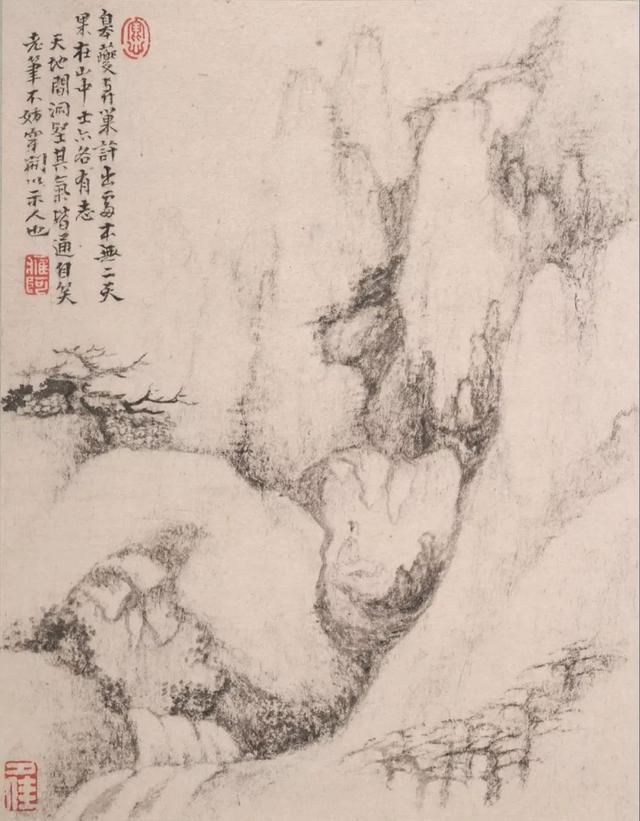 皋夔与巢許出處本無二
果在山中士亦各有志
天地間洞壑其氣皆通自笑
老筆不妨穿以示人也